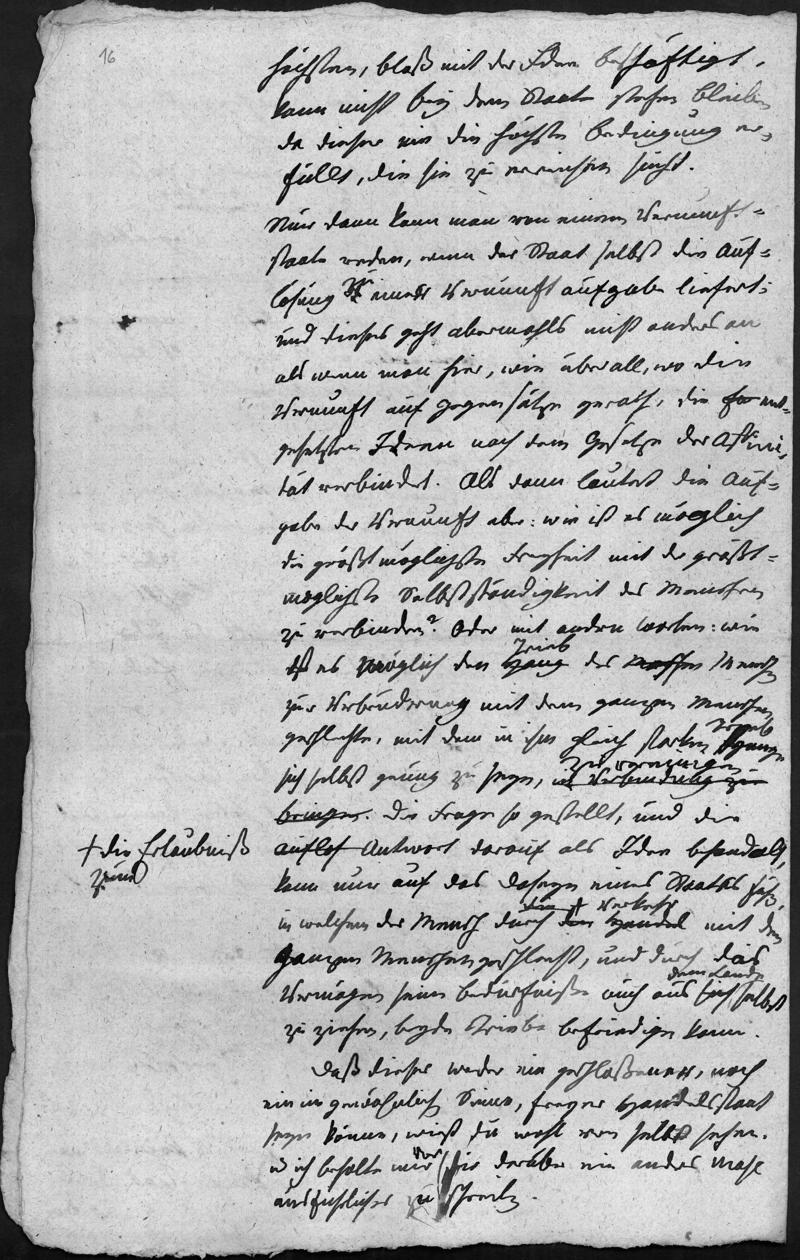 16
höchsten, bloß mit der Ideen beschäftigt,
kann nicht bey dem Staate stehen bleiben
da dieser nie die höchste Bedingung er-
füllt, die sie zu erreichen sucht.
Nur dann kann man von einem Vernunft-
staate reden, wenn der Staat selbst die Auf-
lösung einer Vernunftaufgabe liefert;
und dieses geht abermahls nicht anders an
als wenn man hier, wie überall, wo die
Vernunft auf Gegensätze geräth, die ent-
gesetzten Ideen nach dem Gesetze der Affini-
tät verbindet. Als dann lautet die Auf-
gabe der Vernunft aber: wie ist es möglich
die größtmöglichste Freyheit mit der größt-
möglichste Selbstständigkeit des Menschen
zu verbinden? Oder mit andern Worten: wie
ist es möglich den Trieb des Mensch
zur Verbrüderung mit dem ganzen Menschen
geschlechte, mit dem in ihm gleich starken
sich selbst genug zu seyn, zu vereinigen
Die Frage so gestellt, und die
Antwort darauf als Idee behandelt,
† die Erlaubniß
zum
kann nur auf das Daseyn eines Staates
in welchem der Mensch durch † Verkehr mit dem
ganzen Menschengeschlecht, und durch das
Vermögen seine Bedürfniße auch aus dem Lande selbst
zu ziehen, beyde Triebe befriedigen kann.
Daß dieser weder ein geschloßener, noch
ein im gewöhnlich Sinne, freyer Handelsstaat
seyn könne, wirst du wohl von selbst sehen.
ich behalte mir vor, dir darüber ein andres Mahl
ausführlicher zu schreiben.